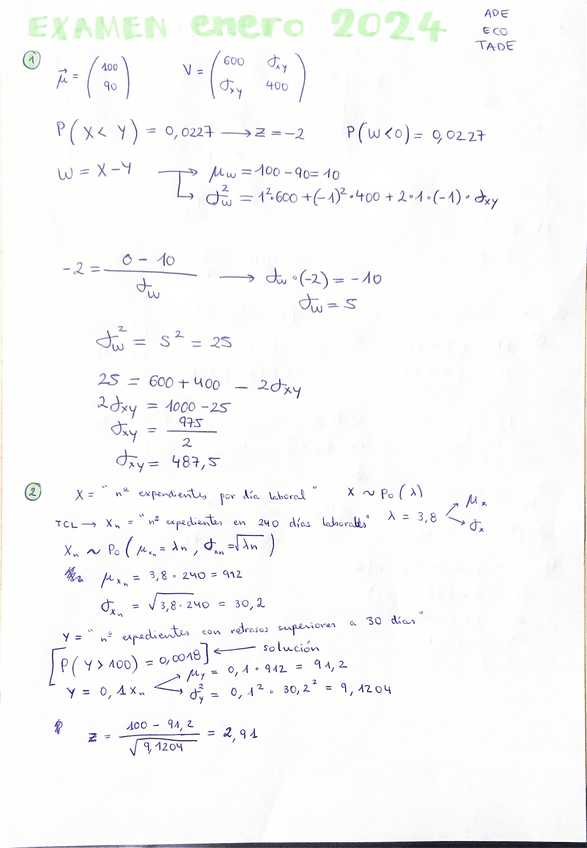 EXAMEN enero 2024
ADE
ECO
TADE
① μ⃗ = (100 90) V = (600 σxy σxy 400)
P(X < Y) = 0,0227 ⟶ z = -2 P(W<0) = 0,0227
W = X - Y ⟶ μw = 100 - 90 = 10
↳ σ²w = 1²·600 + (-1)²·400 + 2·1·(-1)·σxy
-2 = (0 - 10)/σw ⟶ σw·(-2) = -10
σw = 5
σ²w = 5² = 25
25 = 600 + 400 - 2σxy
2σxy = 1000 - 25
σxy = 975/2
σxy = 487,5
② X = "nº expendientes por día laboral" X ~ Po(λ)
TCL ⟶ Xn = "nº expedientes en 240 días laborales" λ = 3,8 μx σx
Xn ~ Po(μxn = λn, σxn = √λn)
μxn = 3,8 · 240 = 912
σxn = √3,8·240 = 30,2
Y = "nº expedientes con retrasos superiores a 30 días"
[P(Y > 100) = 0,0018] ⟵ solución
Y = 0,1Xn μY = 0,1 · 912 = 91,2
σ²Y = 0,1² · 30,2² = 9,1204
z = (100 - 91,2)/√9,1204 = 2,91